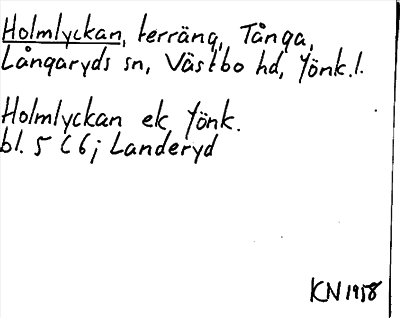 Holmlyckan, terräng, Tånga,
Långaryds sn, Västbo hd, Jönk.l.
Holmlyckan ek Jönk.
bl. 5 C 6j Landeryd
KN 1958